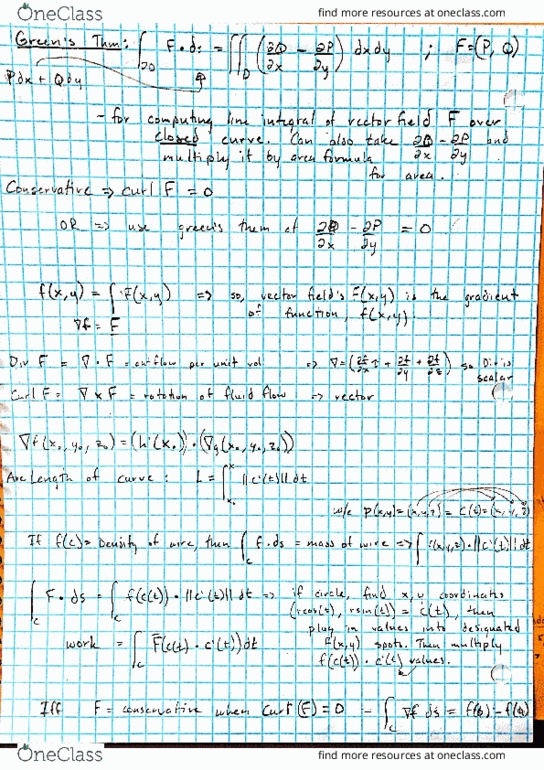 OneClass
find more resources at oneclass.com
Green's Thm: ∫∂D F•ds = ∬D (∂Q/∂x - ∂P/∂y) dxdy ; F=(P, Q)
Pdx + Qdy
- for computing line integral of vector field F over
closed curve. Can also take ∂Q/∂x - ∂P/∂y and
multiply it by area formula
for area.
Conservative ⇒ curl F = 0
OR ⇒ use green's them of ∂Q/∂x - ∂P/∂y = 0
f(x,y) = ∫ F(x,y) ⇒ so, vector field's F(x,y) is the gradient
∇f = F of function, f(x,y).
Div F = ∇ · F = outflow per unit vol ⇒ ∇ = (∂f/∂x + ∂f/∂y + ∂f/∂z) so Div is
scalar
Curl F = ∇ × F = rotation of fluid flow ⇒ vector
∇f(x₀, y₀, z₀) = (h'(x₀)) · (∇g(x₀, y₀, z₀))
Arc Length of curve: L = ∫ ||c'(t)|| dt
w/e P(x,y) = (x,y,z) = c(t) = (x, y, z)
If f(c) = Density of wire, then ∫c f·ds = mass of wire ⇒ ∫ f(x,y,z) · ||c'(t)|| dt
∫c F·ds = ∫c f(c(t)) · ||c'(t)|| dt ⇒ if circle, find x,y coordinates
(rcos(t), rsin(t)) = c(t), then
plug in values into designated
work = ∫c F(c(t) · c'(t)) dt F(x,y) spots. Then multiply
f(c(t)) · c'(t) values.
Iff F = conservative when Curl (F) = 0 - ∫c ∇f ds = f(b) - f(a)
OneClass
find more resources at oneclass.com